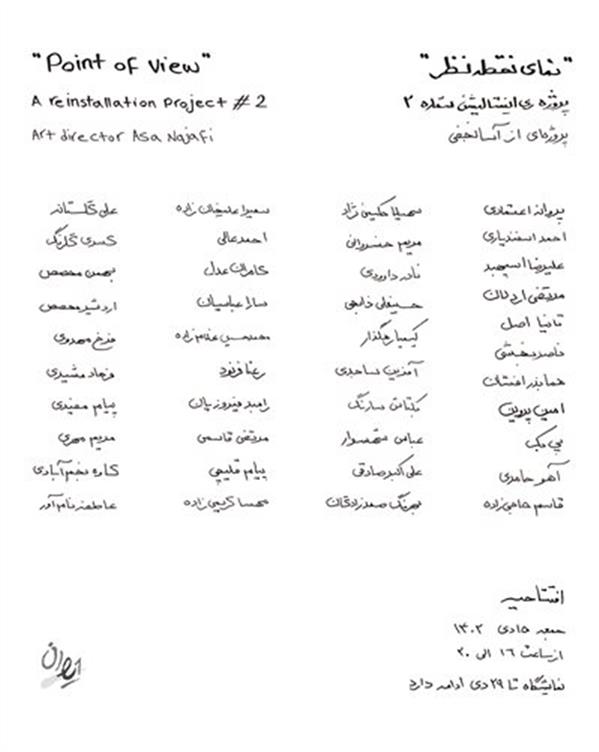 "Point of View"
A reinstallation project #2
Art director Asa Najafi
"نمای نقطه نظر"
پروژه ی اینستالیشن ستاره ۲
پروژه‌ای از آسا نجفی
پروانه اعتمادی
احمد اسفندیاری
علیرضا اسپهبد
مرتضی
تانیا اصل
ناصر بخشی
هما بذرافشان
امین پروین
آهو حامدی
قاسم حاجی زاده
سهیلا حکیمی نژاد
مریم خسروانی
نادر داوودی
حسینعلی ذابحی
کیمیا رهگذار
آفرین ساجدی
یکتاش سارنگ
عباس شهسوار
علی اکبر صادقی
بهرنگ صمدزادگان
سمیرا علیخان زاده
احمد عالی
کامران عدل
سارا عباسیان
محمدحسین غلامزاده
رعنا فرنود
رامبد فیروزیان
مرتضی قاسمی
پیام قلیچی
مهسا کریمی زاده
علی گلستانه
کسری گلرنگ
بهمن محصص
اردشیر محصص
فرخ مهدوی
فرهاد مشیری
پیام مفیدی
مریم مهری
کاوه نجم آبادی
عاطفه نام آور
افتتاحیه
جمعه ۸ دی ۱۴۰۲
از ساعت ۱۶ الی ۲۰
نمایشگاه تا ۲۹ دی ادامه دارد
ایوان